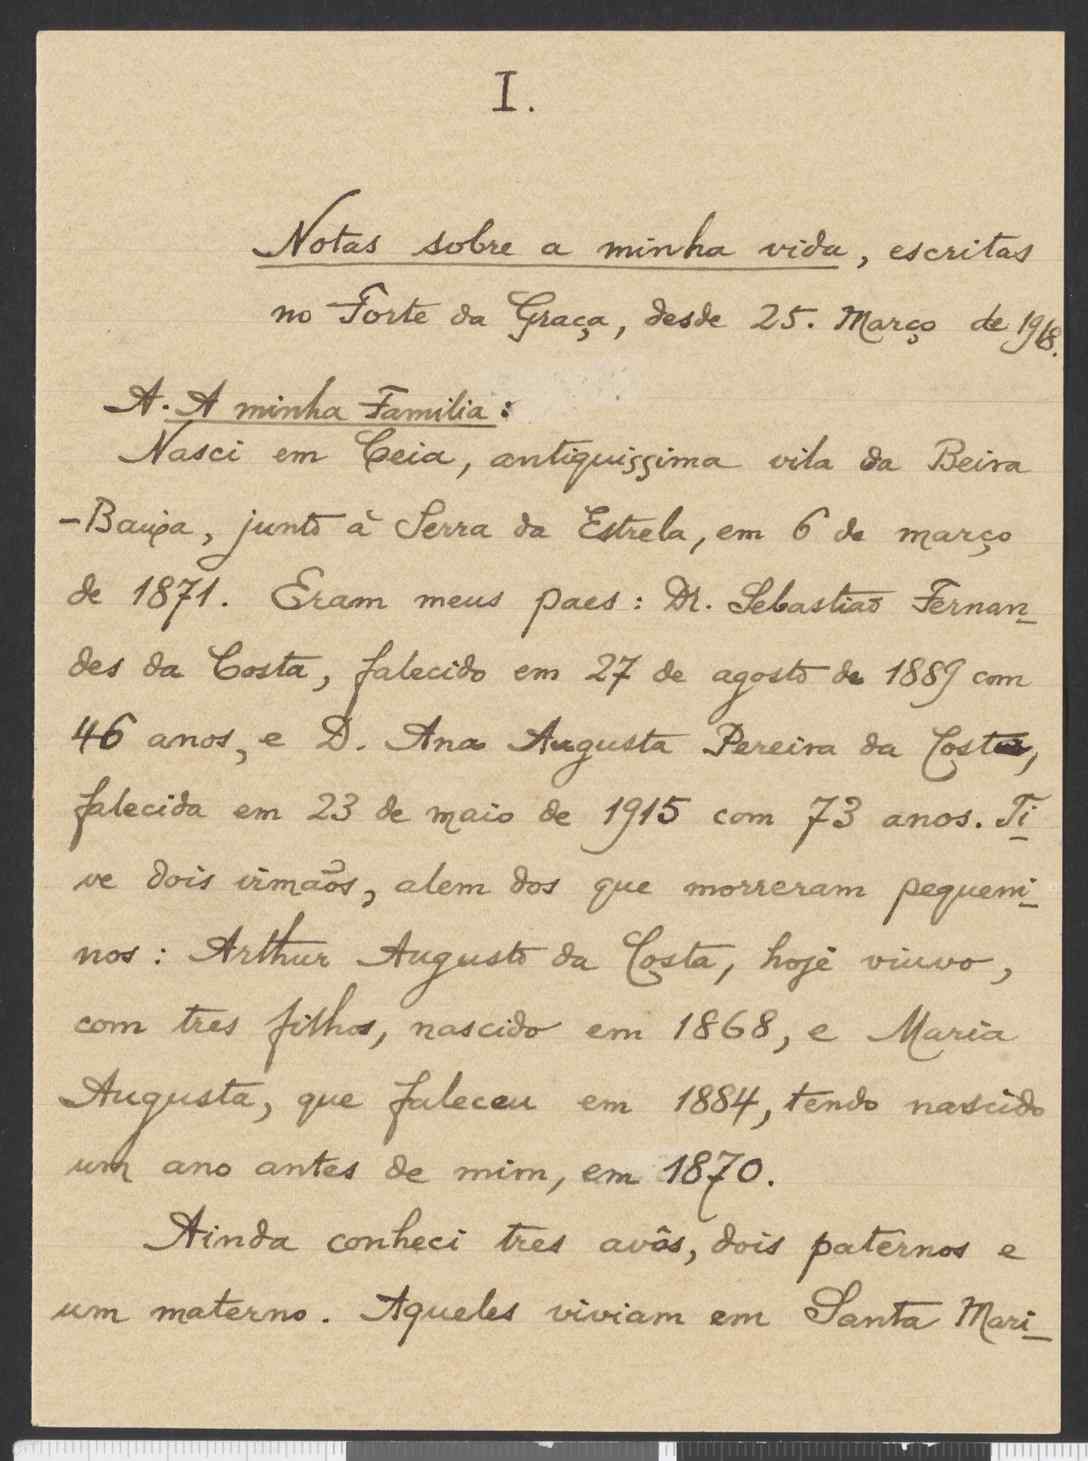 I.
Notas sobre a minha vida, escritas
no Forte da Graça, desde 25. Março de 1918.
A. A minha Familia:
Nasci em Ceia, antiquissima vila da Beira
-Baixa, junto à Serra da Estrela, em 6 de março
de 1871. Eram meus paes: Dr. Sebastião Fernan-
des da Costa, falecido em 27 de agosto de 1889 com
46 anos, e D. Ana Augusta Pereira da Costa,
falecida em 23 de maio de 1915 com 73 anos. Ti-
ve dois irmãos, alem dos que morreram pequeni-
nos: Arthur Augusto da Costa, hoje viuvo,
com tres filhos, nascido em 1868, e Maria
Augusta, que faleceu em 1884, tendo nascido
um ano antes de mim, em 1870.
Ainda conheci tres avôs, dois paternos e
um materno. Aqueles viviam em Santa Mari-